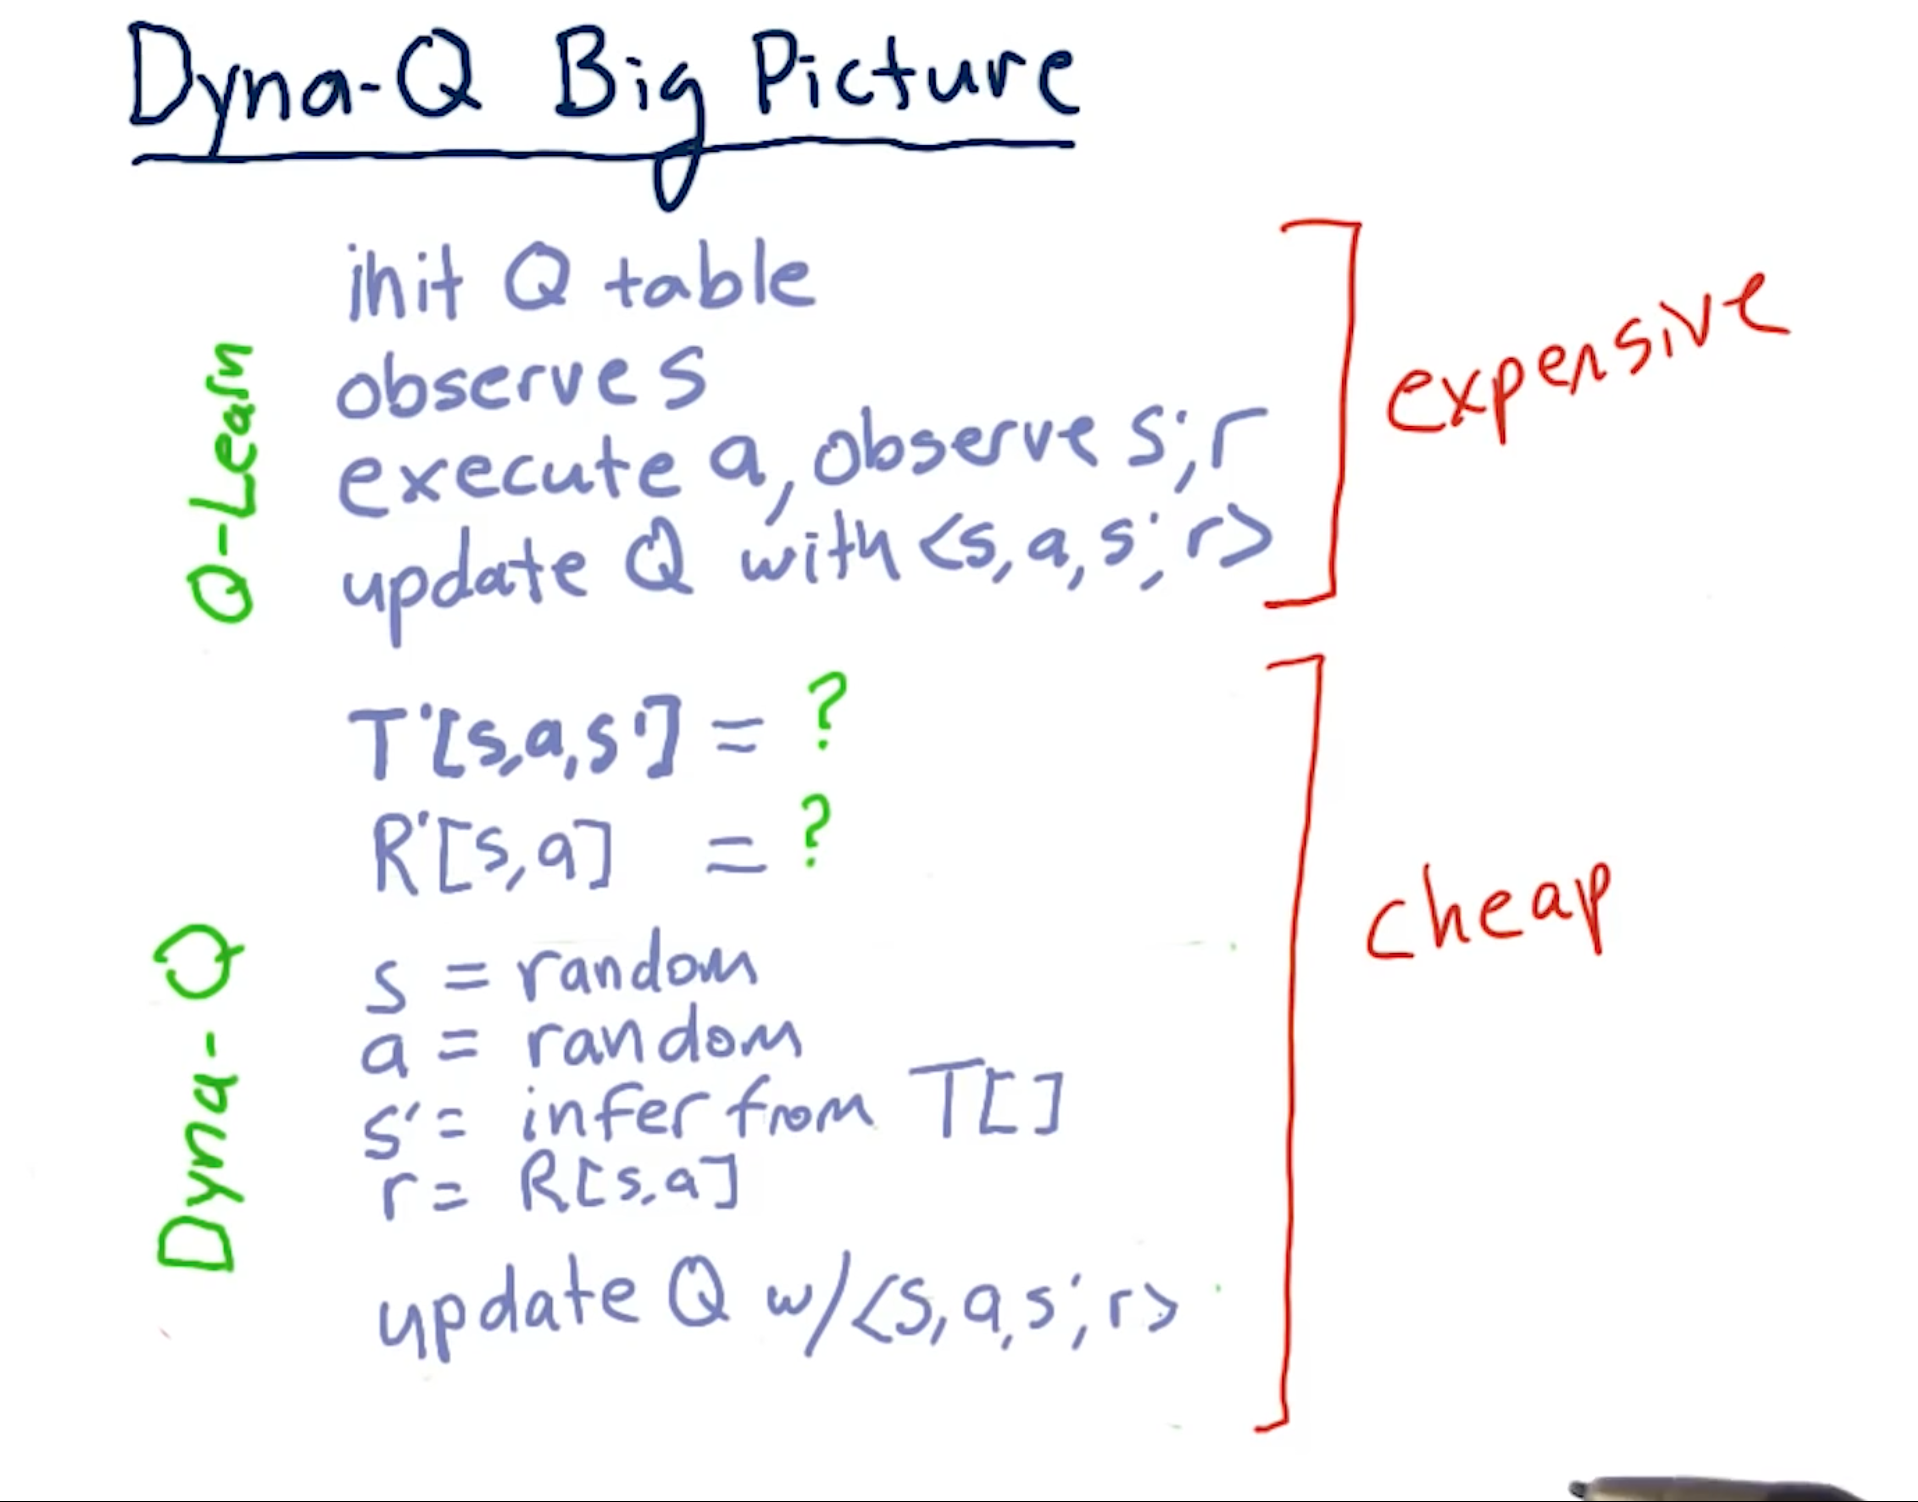 Dyna-Q Big Picture
init Q table
observe s
execute a, observe s', r
update Q with <s, a, s', r>
expensive
Q-Learn
T'[s,a,s'] = ?
R'[s,a] = ?
s = random
a = random
s' = infer from T[]
r = R[s,a]
update Q w/ <s, a, s', r>
cheap
Dyna-Q